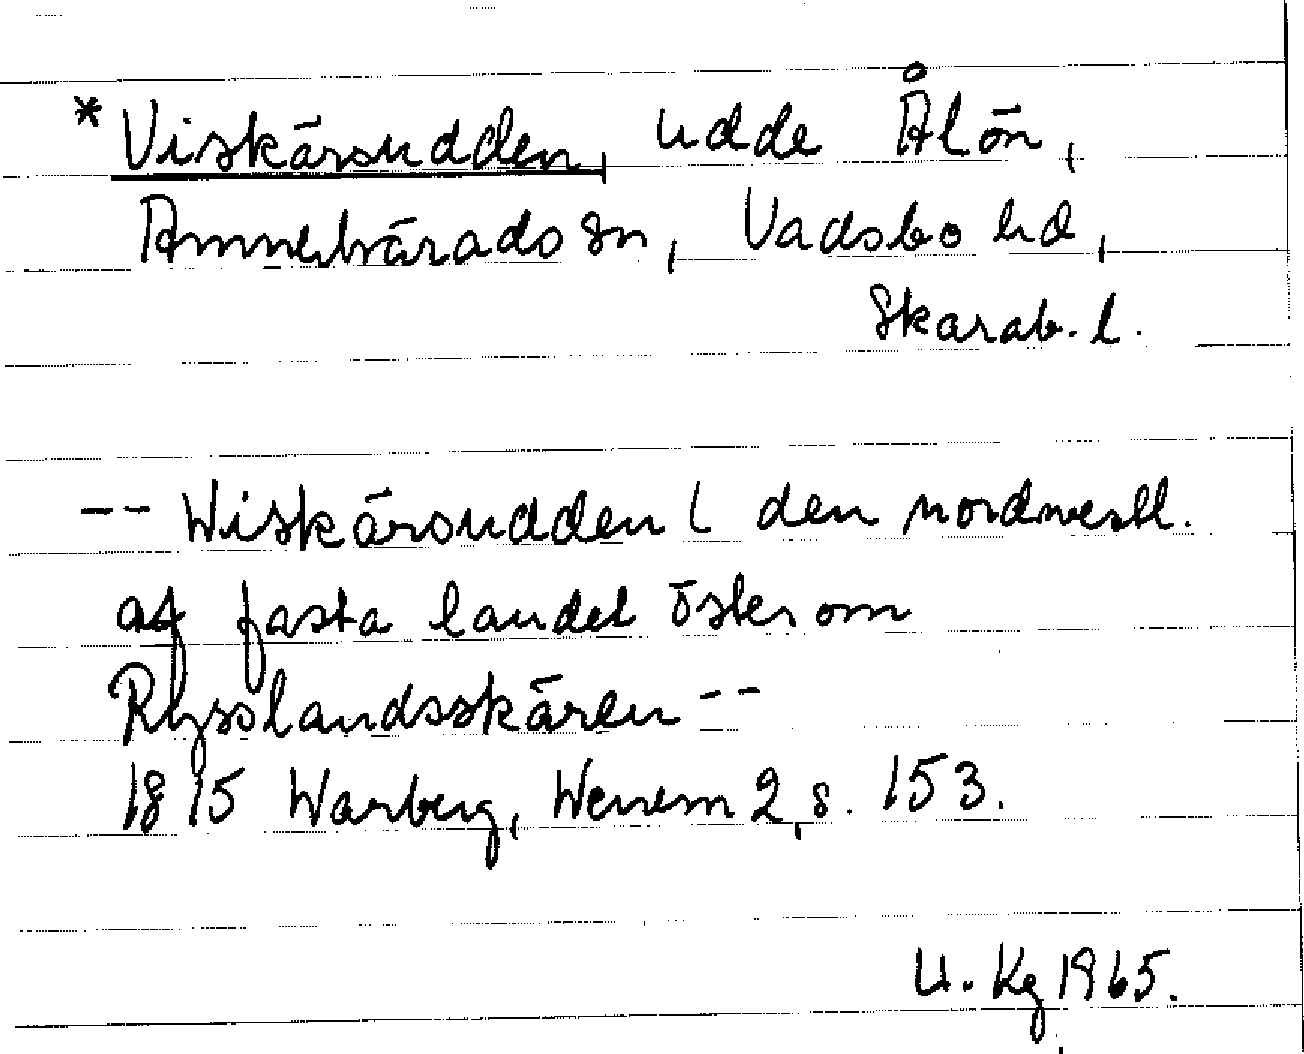 * Viskärsudden, udde Ålön,
Amnehärads sn, Vadsbo hd,
Skarab. l.
-- Wiskärsudden ( den nordwestl.
af fasta landet öster om
Rysslandsskären --
1815 Warberg, Wenern 2, s. 153.
U. Kg 1965.